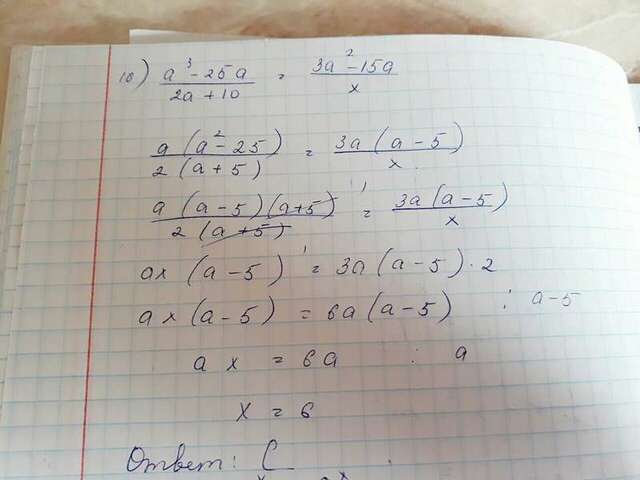 10) (a³ - 25a)/(2a + 10) = (3a² - 15a)/x
a(a² - 25)/2(a + 5) = 3a(a - 5)/x
a(a - 5)(a + 5)/2(a + 5) = 3a(a - 5)/x
ax(a - 5) = 3a(a - 5) · 2
ax(a - 5) = 6a(a - 5) : a - 5
ax = 6a : a
x = 6
Ответ: C